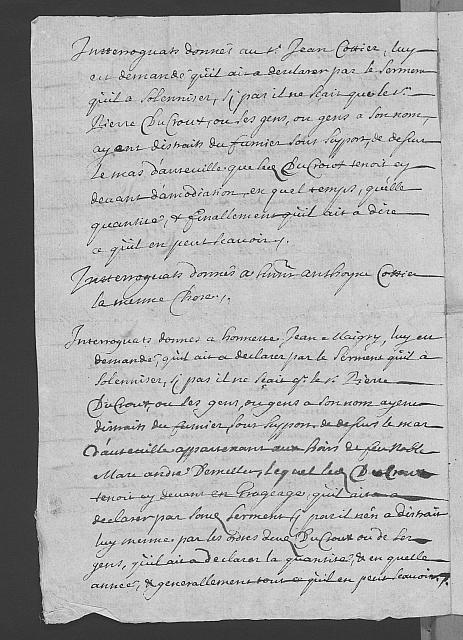 Interroguats donnés au Sr. Jean Cottier, luy
est demandé qu'il ait a declarer par le serment
qu'il a solenniser, si par il ne sçait que le Sr.
Pierre DuCrout, ou ses gens, ou gens a son nom,
ayent distraits du fumier sous de dessus
le mas d'auteuille que led. DuCrout tenoit cy
devant d'amodiation, en quel temps, qu'elle
quantité, & finallement qu'il ait a dire
ce qu'il en peut scavoir /.
Interroguats donnés a anthoyne Cottier
la mesme chose /.
Interrogats donnés a honneste Jean Maigry, luy est
demandé, qu'il ait a declarer par le serment qu'il a
solenniser, si pas il ne sçait q. le Sr. Pierre
DuCrout, ou ses gens, ou gens a son nom ayent
distraits du fumier sous de dessus le mas
d'auteuille appartenant aux hoirs de feu Noble
Marc andre lequel led. DuCrout
tenoit cy devant en grageage, qu'il ait a
declarer par serment si par il n'en a distrait
luy mesme par les ordres dud. DuCrout ou de ses
gens, qu'il ait a declarer la quantité, & en quelle
année, & generallement tout ce qu'il en peut scavoir /.